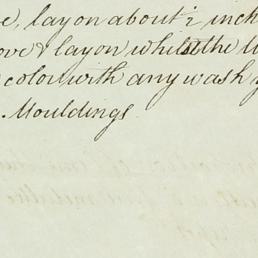 e, lay on about ½ inch
ove & lay on whilst the w
colour with any wash y
Mouldings.